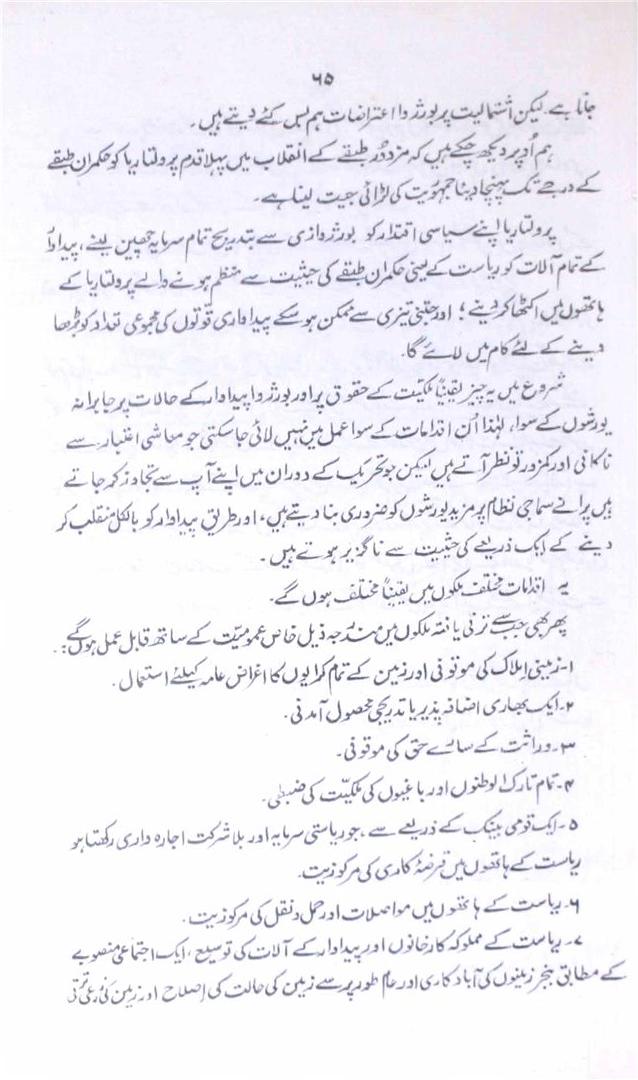 ۶۵
جاتا ہے۔ لیکن اشتمالیت پر بورژوا اعتراضات ہم بس کئے دیتے ہیں۔
ہم اُوپر دیکھ چکے ہیں کہ مزدور طبقے کے انقلاب میں پہلا قدم پرولتاریا کو حکمران طبقے
کے درجے تک پہنچا دینا جمہوریت کی لڑائی جیت لینا ہے۔
پرولتاریا اپنے سیاسی اقتدار کو بورژوازی سے بتدریج تمام سرمایہ چھین لینے، پیداوار
کے تمام آلات کو ریاست کے یعنی حکمران طبقے کی حیثیت سے منظم ہونے والے پرولتاریا کے
ہاتھوں میں اکٹھا کر دینے؛ اور جتنی تیزی سے ممکن ہو سکے پیداواری قوتوں کی مجموعی تعداد کو بڑھا
دینے کے لئے کام میں لائے گا۔
شروع میں یہ چیز یقیناً ملکیت کے حقوق پر اور بورژوا پیداوار کے حالات پر جابرانہ
یورشوں کے سوا، لہٰذا اُن اقدامات کے سوا عمل میں نہیں لائی جا سکتی جو معاشی اعتبار سے
ناکافی اور کمزور تو نظر آتے ہیں لیکن جو تحریک کے دوران میں اپنے آپ سے تجاوز کر جاتے
ہیں پرانے سماجی نظام پر مزید یورشوں کو ضروری بنا دیتے ہیں، اور طریق پیداوار کو بالکل منقلب کر
دینے کے ایک ذریعے کی حیثیت سے ناگزیر ہوتے ہیں۔
یہ اقدامات مختلف ملکوں میں یقیناً مختلف ہوں گے۔
پھر بھی سب سے ترقی یافتہ ملکوں میں مندرجہ ذیل خاص عمومیت کے ساتھ قابل عمل ہوں گے:۔
۱۔ زمینی املاک کی موقوفی اور زمین کے تمام کرایوں کا اغراض عامہ کیلئے استعمال۔
۲۔ ایک بھاری اضافہ پذیر یا تدریجی محصول آمدنی۔
۳۔ وراثت کے سارے حق کی موقوفی۔
۴۔ تمام تارک الوطنوں اور باغیوں کی ملکیت کی ضبطی۔
۵۔ ایک قومی بینک کے ذریعے سے، جو ریاستی سرمایہ اور بلا شرکت اجارہ داری رکھتا ہو
ریاست کے ہاتھوں میں قرضہ کاری کی مرکوزیت۔
۶۔ ریاست کے ہاتھوں میں مواصلات اور حمل و نقل کی مرکوزیت۔
۷۔ ریاست کے مملوکہ کارخانوں اور پیداوار کے آلات کی توسیع، ایک اجتماعی منصوبے
کے مطابق بنجر زمینوں کی آباد کاری اور عام طور پر سے زمین کی حالت کی اصلاح اور زمین کی زرعی ترقی